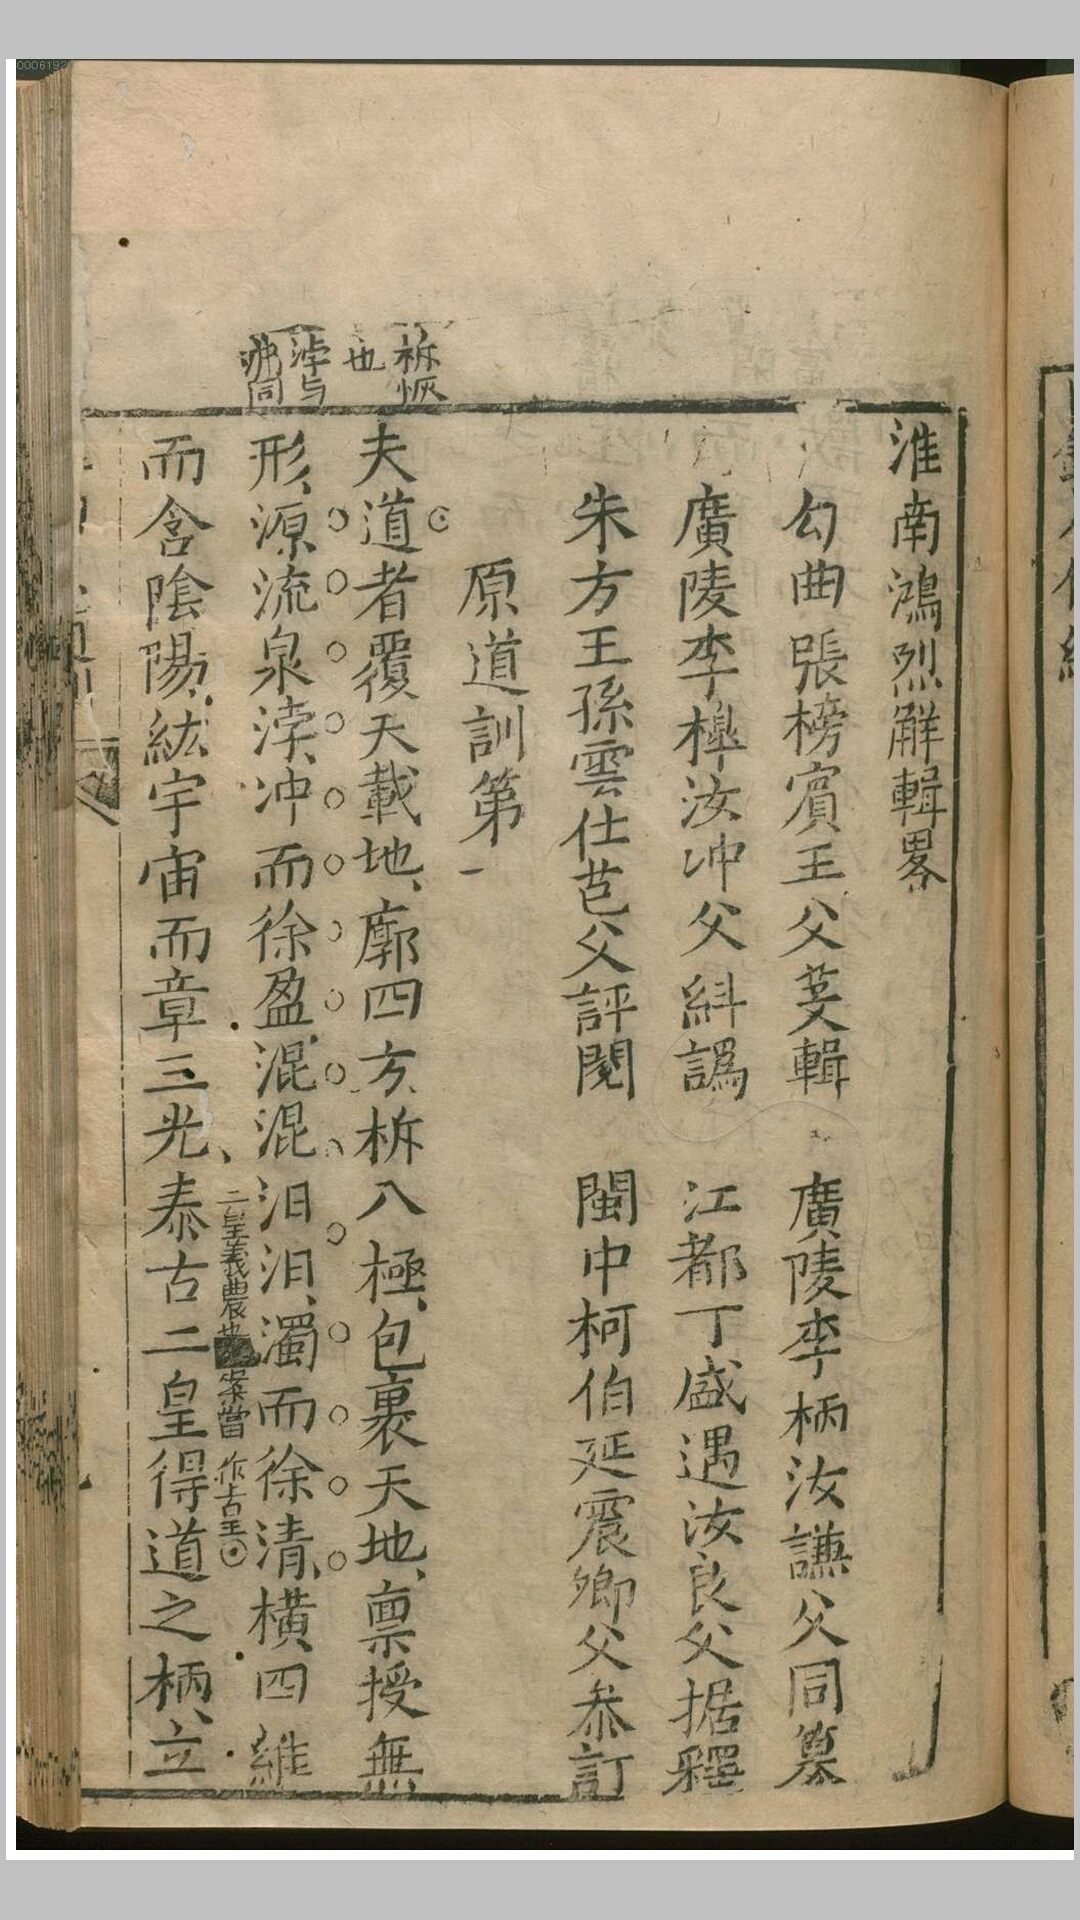 淮南鴻烈解輯畧
勾曲張榜賓王父芟輯 廣陵李柄汝謙父同纂
廣陵李檋汝冲父糾譌 江都丁盛遇汝良父据釋
朱方王孫雲仕芑父評閱 閩中柯伯延震卿父叅訂
原道訓第一
柝恢也
夫道者覆天載地、廓四方、柝八極、包裹天地、禀授無
浡与㴋同
形、源流泉浡、冲而徐盈、混混汩汩、濁而徐清、橫四維
二皇義農也 案當作古王
而含陰陽、紘宇宙而章三光、泰古二皇得道之柄、立